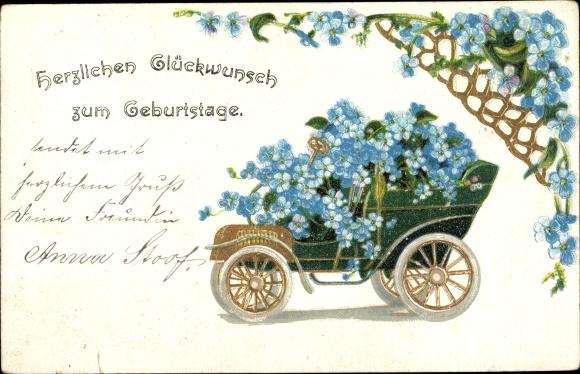 Herzlichen Glückwunsch
zum Geburtstage.
sendet mit
herzlichem Gruß
Deine Freundin
Anna Stoof.